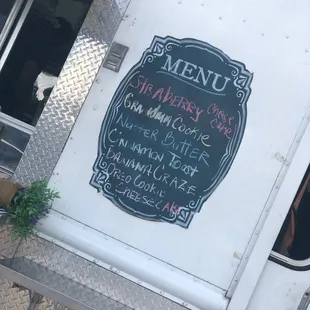 MENU
STRABERRY CHEESE CAKE
GRANDMA COOKIE
NUTTER BUTTER
CINNAMON TOAST
BANANA CRAZE
OREO COOKIE
CHEESECAKE